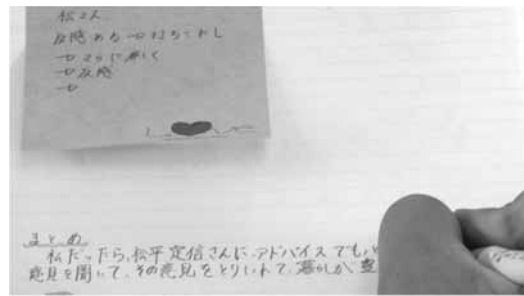 松さん
反感ある→打ちこわし
→さらに厳しく
→反感
→
まとめ
私だったら、松平定信さんに、アドバイスでも、
意見を聞いて、その意見をとりいれて、暮らしが豊